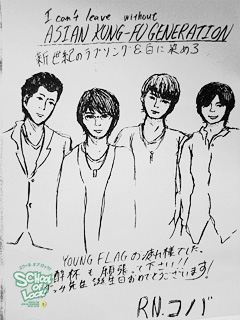 I can't leave without
ASIAN KUNG-FU GENERATION
新世紀のラブソング&白に染め3
YOUNG FLAGお疲れ様でした。
杯も頑張って下さい!!
先生誕生日おめでとうございます!
SCHOOL OF LOCK!
R.N.コバ